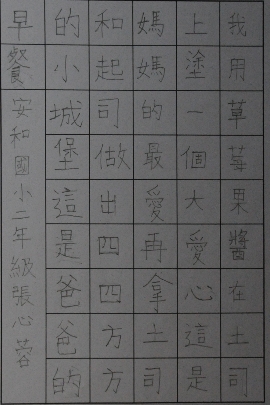 我用草莓果醬在土司
上塗一個大愛心這是
媽媽的最愛再拿土司
和起司做出四四方方
的小城堡這是爸爸的
早餐
安和國小二年級張心蓉